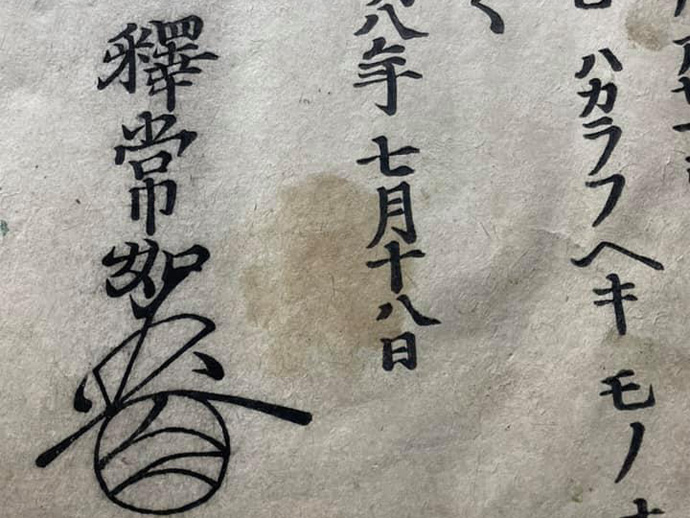 ハカラフヘキ モノ
八年 七月十八日
釋常如